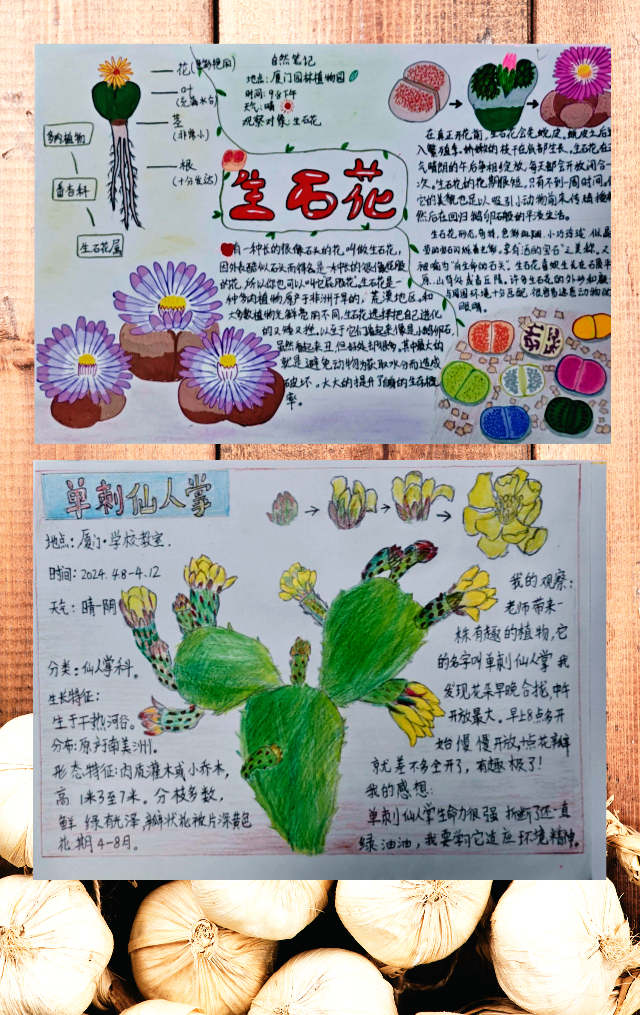 花(
叶
茎
(非常小)
根
(十分发达)
多肉植物
番杏科
生石花属
自然笔记
地点:厦门园林植物园
时间:9:00下午
天气:晴
观察对象:生石花
生石花
有一种长的很像石头的花,叫做生石花,
因外表酷似石头而得名是一种长的很像屁股
的花,所以你也可以叫它屁股花。生石花是一
种多肉植物原产于非洲干旱的,荒漠地区,和
大多数植物光鲜亮丽不同,生石花选择把自己进化
的又矮又挫,以至于它们看起来像是小鹅卵石
虽然看起来丑,但好处却很多,其中最大的
就是避免动物为获取水分而造成
破坏。大大的提升了自己的生存概
率。
在真正开花前,生石花会先蜕皮,蜕皮之后进
入繁殖季,
气晴朗的午后争相绽放,每天都会开放闭合一
次,生石花的花期很短,只有不到一周时间,但
它的美貌也足以吸引小动物前来传播授粉
然后在回归鹅卵石般的平淡生活。
生石花形态奇特,色彩斑斓,小巧玲珑,似晶
莹的宝石闪烁着光彩,享有活的宝石之美称,又
被喻为"有生命的石头"。生石花喜欢生长在石质平
原、山脊处或者丘陵。许多生石花的外形和颜
与周围环境十分匹配,很容易迷惑动物的
眼睛。
单刺仙人掌
地点:厦门·学校教室.
时间:2024.4.8-4.12
天气:晴-阴
分类:仙人掌科。
生长特征:
生于干热河谷。
分布:原产南美洲。
形态特征:肉质灌木或小乔木,
高1米3至7米。分枝多数,
鲜绿有光泽瓣状花被片深黄色
花期4-8月。
我的观察:
老师带来一
株有趣的植物,它
的名字叫单刺仙人掌 我
发现花朵早晚合拢,中午
开放最大。早上8点多开
始慢慢开放,1点花瓣
就差不多全开了,有趣极了!
我的感想:
单刺仙人掌生命力很强 折断了还一直
绿油油,我要学习它适应环境精神。